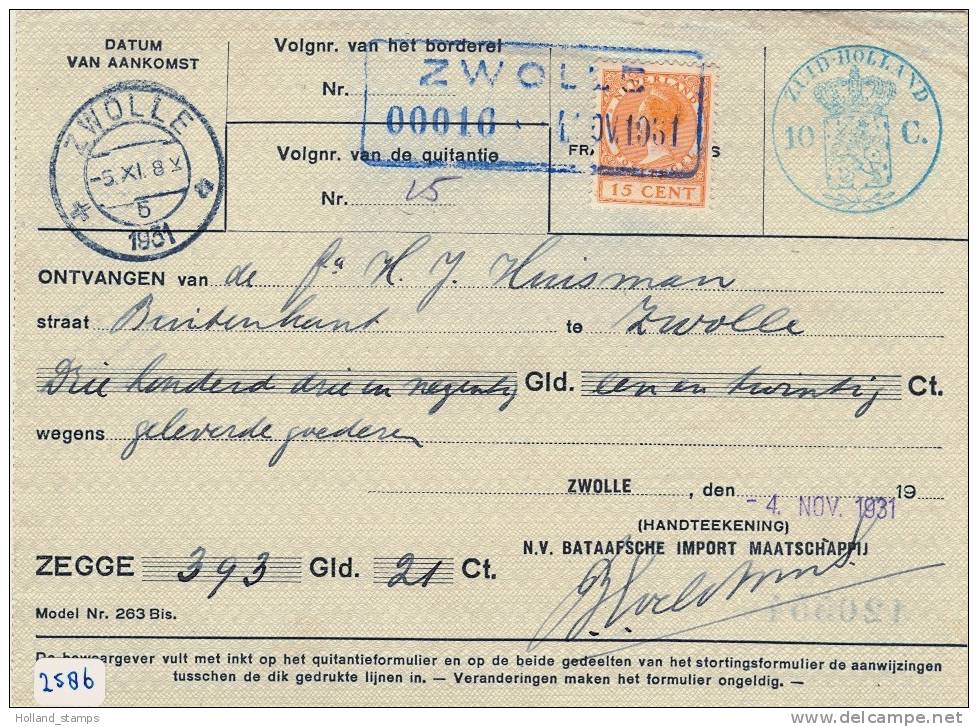 DATUM
VAN AANKOMST
ZWOLLE
-5.XI.8
5
1931
Volgnr. van het borderel
Nr.
Volgnr. van de quitantie
Nr. 15
ZWOLLE
00016 NOV 1931
NEDERLAND
15 CENT
FRA S
ZUID-HOLLAND
10 C.
ONTVANGEN van de Fa H. J. Huisman
straat Buitenkant te Zwolle
Drie honderd drie en negentig Gld. een en twintig Ct.
wegens geleverde goederen
ZWOLLE, den 19
- 4. NOV. 1931
(HANDTEEKENING)
N.V. BATAAFSCHE IMPORT MAATSCHAPPIJ
ZEGGE 393 Gld. 21 Ct.
Model Nr. 263 Bis.
De bewaargever vult met inkt op het quitantieformulier en op de beide gedeelten van het stortingsformulier de aanwijzingen
tusschen de dik gedrukte lijnen in. — Veranderingen maken het formulier ongeldig. —
2586
Holland_stamps
delcampe.net